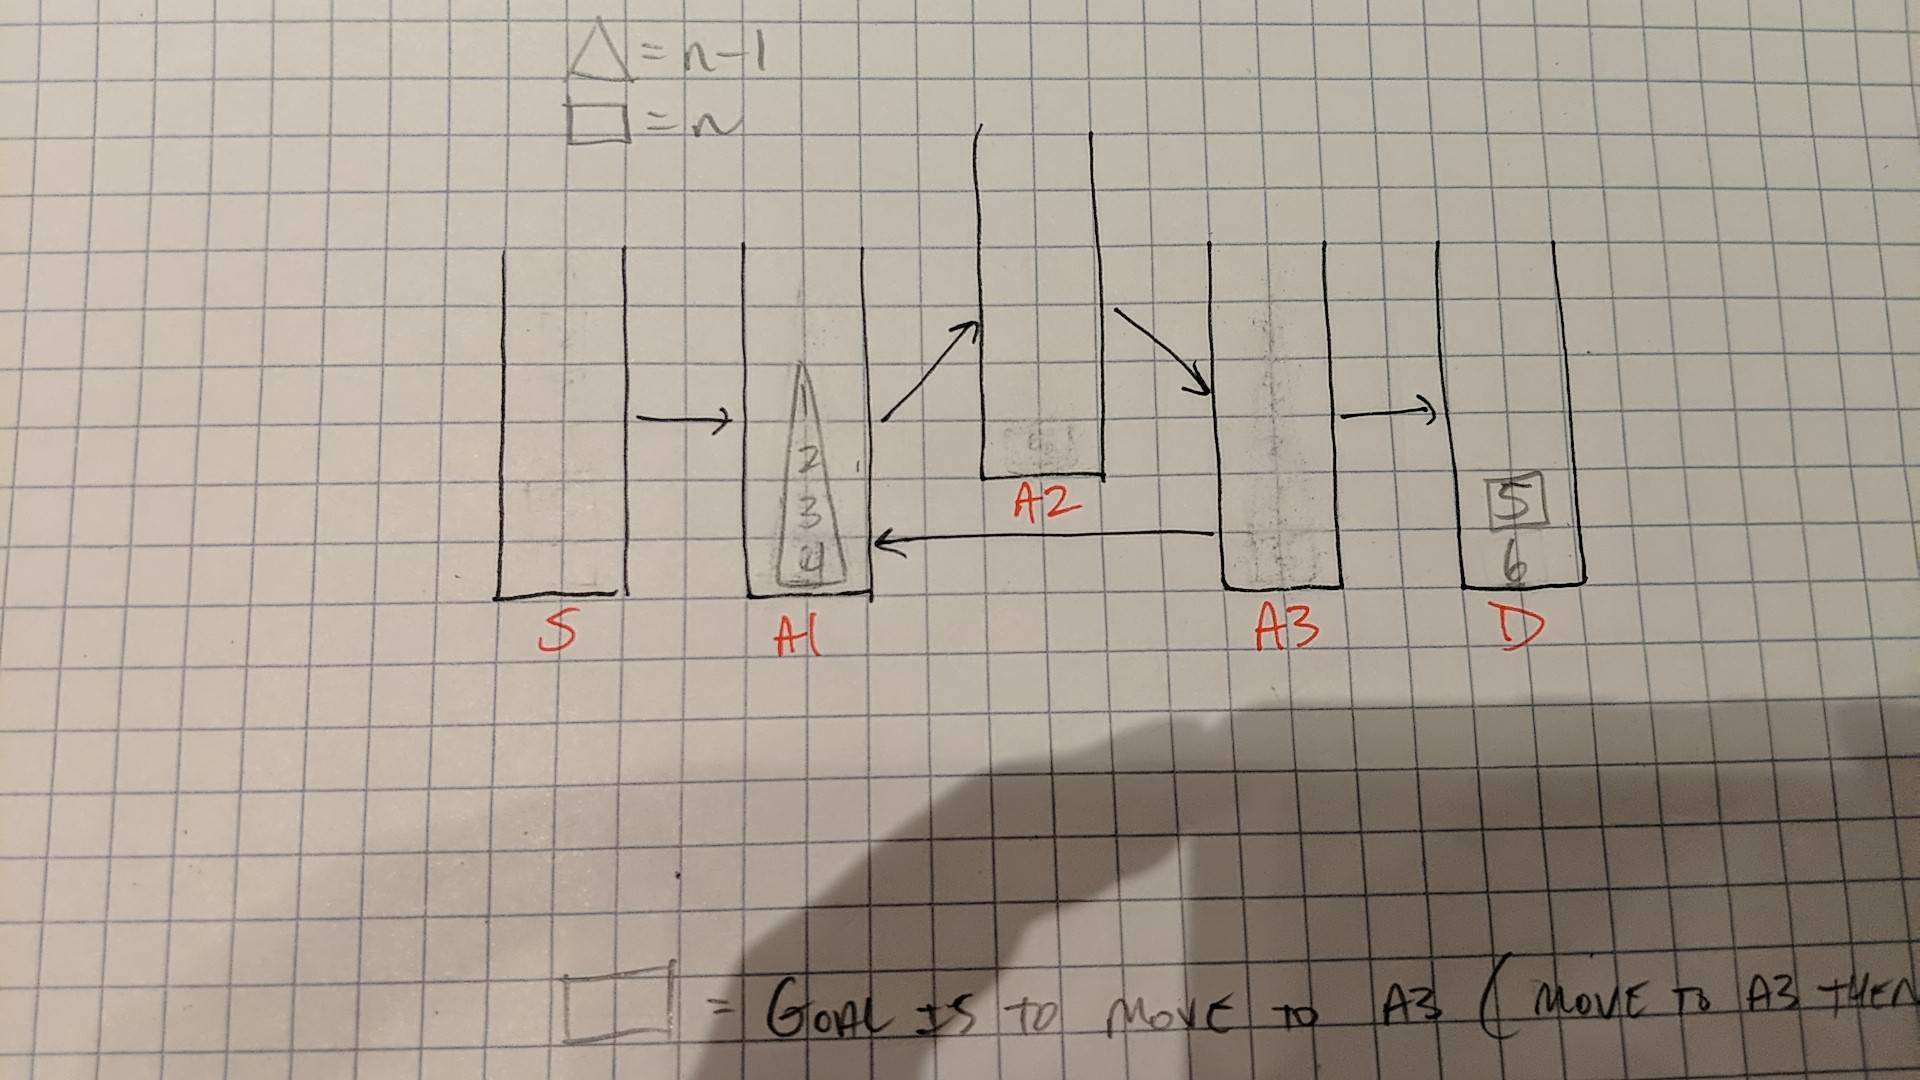 △ = n-1
□ = n
1
2
3
4
5
6
A2
S A1 A3 D
□ = GOAL IS TO MOVE TO A3 (MOVE TO A3 THEN